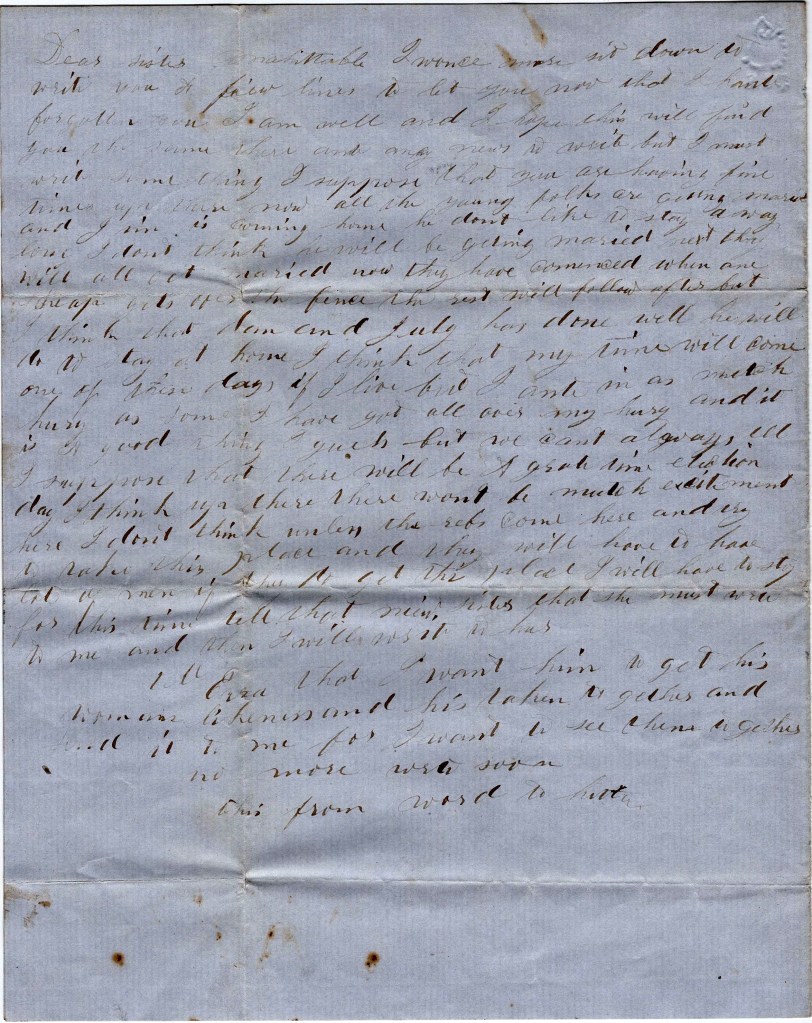 Dear sister I wonce more sit down to
writ you A few lines to let you now that I hant
forgotten you I am well and I hope this will find
you the same there ante any news to writ but I must
writ some thing I suppose that you are having fine
times up there now all the young folks are giting maried
and Jim is coming home he dont like to stay A way
I dont think will be giting maried next they
will all get maried now they have comenced when one
sheap gits over the fence the rest will follow after but
I think that dan and July has done well he will
do to tay at home I think that my time will come
one of these days if I live but I ante in as mutch
hury as some I have got all over my hury and it
is A good thing I guess but we cant always tell
I suppose that there will be A grate time election
day I think up there there wont be mutch excitement
here I dont think unless the rebs come here and try
to take this place and they will have to have
lot of men if the do get this place I will have to stop
for this time tell that sister that she must write
to me and then I will writ to her
tell Ezra that I want him to get his
woman likeness and his taken to gether and
send it to me for I want to see them to gether
no more writ soon
this from word to